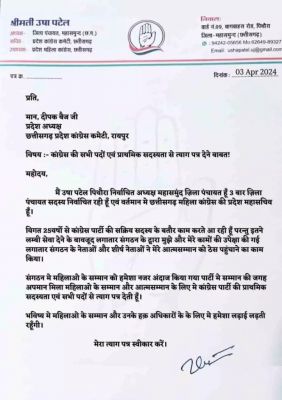 श्रीमती उषा पटेल
अध्यक्ष- जिला पंचायत, महासमुन्द (छ.ग.)
सचिव- प्रदेश कांग्रेस कमेटी, छत्तीसगढ़
प्रदेश महिला कांग्रेस, छत्तीसगढ़
निवास:
वार्ड नं.09, पिथौरा
जिला- महासमुन्द (छत्तीसगढ़)
email: ushapatel.sj@gmail.com
पत्र क्र.
दिनांक : 03 Apr 2024
प्रति,
मान. दीपक बैज जी
प्रदेश अध्यक्ष
छत्तीसगढ़ प्रदेश कांग्रेस कमेटी, रायपुर
विषय :- कांग्रेस की सभी पदों एवं प्राथमिक सदस्यता से त्याग पत्र देने बाबत!
महोदय,
मैं उषा पटेल पिथौरा निर्वाचित अध्यक्ष महासमुंद ज़िला पंचायत हूँ 3 बार ज़िला
पंचायत सदस्य निर्वाचित रही हूँ एवं वर्तमान मे छत्तीसगढ़ महिला कांग्रेस की प्रदेश महासचिव
हूँ।
विगत 25वर्षो से कांग्रेस पार्टी की सक्रिय सदस्य के बतौर काम करते आ रही हूँ परन्तु इतने
लम्बी सेवा देने के बावजूद लगातार संगठन के द्वारा मुझे और मेरे कामों की उपेक्षा की गई
लगातार संगठन के नेताओं और शीर्ष नेताओं ने मेरे आत्मसम्मान को ठेस पहुंचाने का काम
किया।
संगठन मे महिलाओ के सम्मान को हमेशा नजर अंदाज किया गया पार्टी मे सम्मान की जगह
अपमान मिला महिलाओ के सम्मान और आत्मसम्मान के लिए मे कांग्रेस पार्टी की प्राथमिक
सदस्यता एवं सभी पदों से त्याग पत्र देती हूँ।
भविष्य मे महिलाओ के सम्मान और उनके हक़ अधिकारों के के लिए मे हमेशा लड़ाई लड़ती
रहूँगी।
मेरा त्याग पत्र स्वीकार करें।